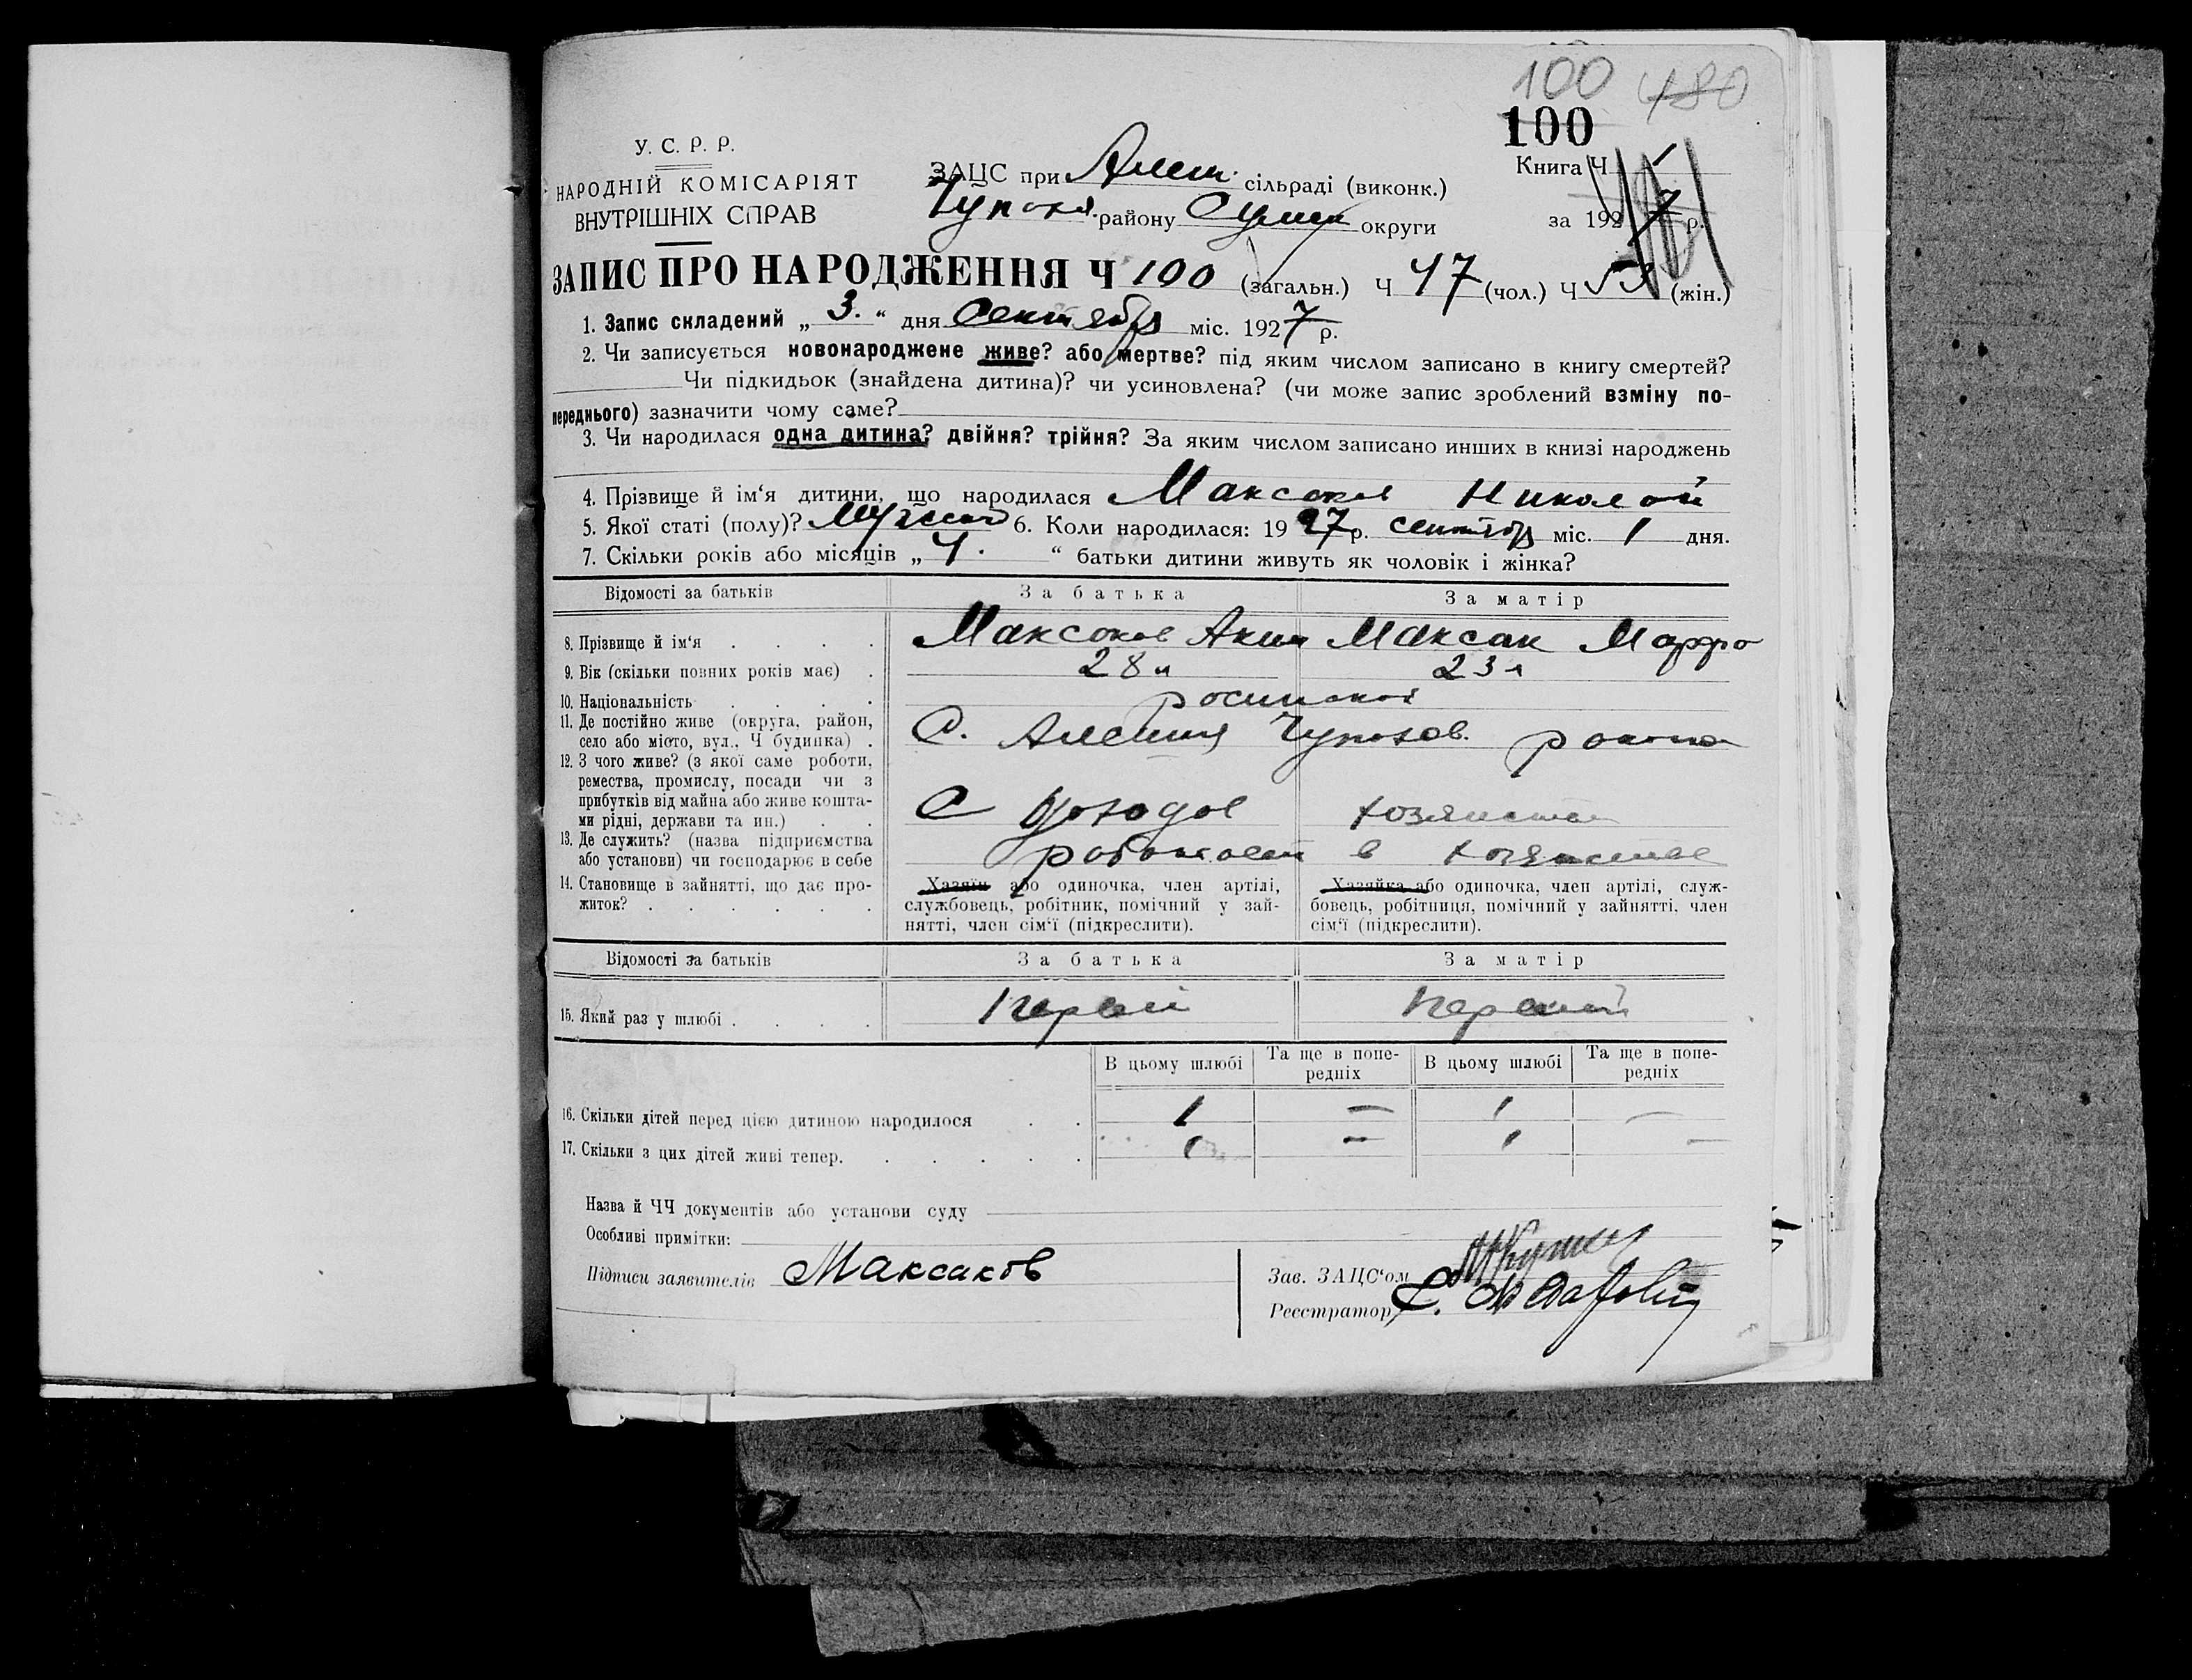 100 480
100
У. С. Р. Р.
НАРОДНІЙ КОМІСАРІЯТ
ВНУТРІШНІХ СПРАВ
ЗАЦС при Алеш. сільраді (виконк.)
району Сумск округи
Книга Ч 1
за 1927 р.
ЗАПИС ПРО НАРОДЖЕННЯ Ч 100 (загальн.) Ч 47 (чол.) Ч 53 (жін.)
1. Запис складений „ 3. “ дня Сентября міс. 1927 р.
2. Чи записується новонароджене живе? або мертве? під яким числом записано в книгу смертей?
Чи підкидьок (знайдена дитина)? чи усиновлена? (чи може запис зроблений взміну по-
переднього) зазначити чому саме?
3. Чи народилася одна дитина? двійня? трійня? За яким числом записано инших в книзі народжень
4. Прізвище й ім‘я дитини, що народилася Максаков Николай
5. Якої статі (полу)? 6. Коли народилася: 1927 р. сентябр міс. 1 дня.
7. Скільки років або місяців „ 4. “ батьки дитини живуть як чоловік і жінка?
Відомості за батьків За батька За матір
8. Прізвище й ім‘я Максаков Аким Максак Марфа
9. Вік (скільки повних років має) 28 л 23 л
10. Національність
11. Де постійно живе (округа, район,
село або місто, вул., Ч будинка) С. Алешня Чупахов. района
12. З чого живе? (з якої саме роботи,
ремества, промислу, посади чи з
прибутків від майна або живе кошта-
ми рідні, держави та ин.) С доходов хозяйства
13. Де служить? (назва підприємства
або установи) чи господарює в себе работает в хозяйстве
14. Становище в зайнятті, що дає про-
житок?
Хазяїн або одиночка, член артілі,
службовець, робітник, помічний у зай-
нятті, член сім‘ї (підкреслити).
Хазяйка або одиночка, член артілі, служ-
бовець, робітниця, помічний у зайнятті, член
сім‘ї (підкреслити).
Відомості за батьків За батька За матір
15. Який раз у шлюбі Первий Первий
В цьому шлюбі Та ще в попе-
редніх В цьому шлюбі Та ще в попе-
редніх
16. Скільки дітей перед цією дитиною народилося 1 — 1 —
17. Скільки з цих дітей живі тепер. 1 — 1 —
Назва й ЧЧ документів або установи суду
Особливі примітки:
Підписи заявителів Максаков
Зав. ЗАЦС‘ом
Реєстратор